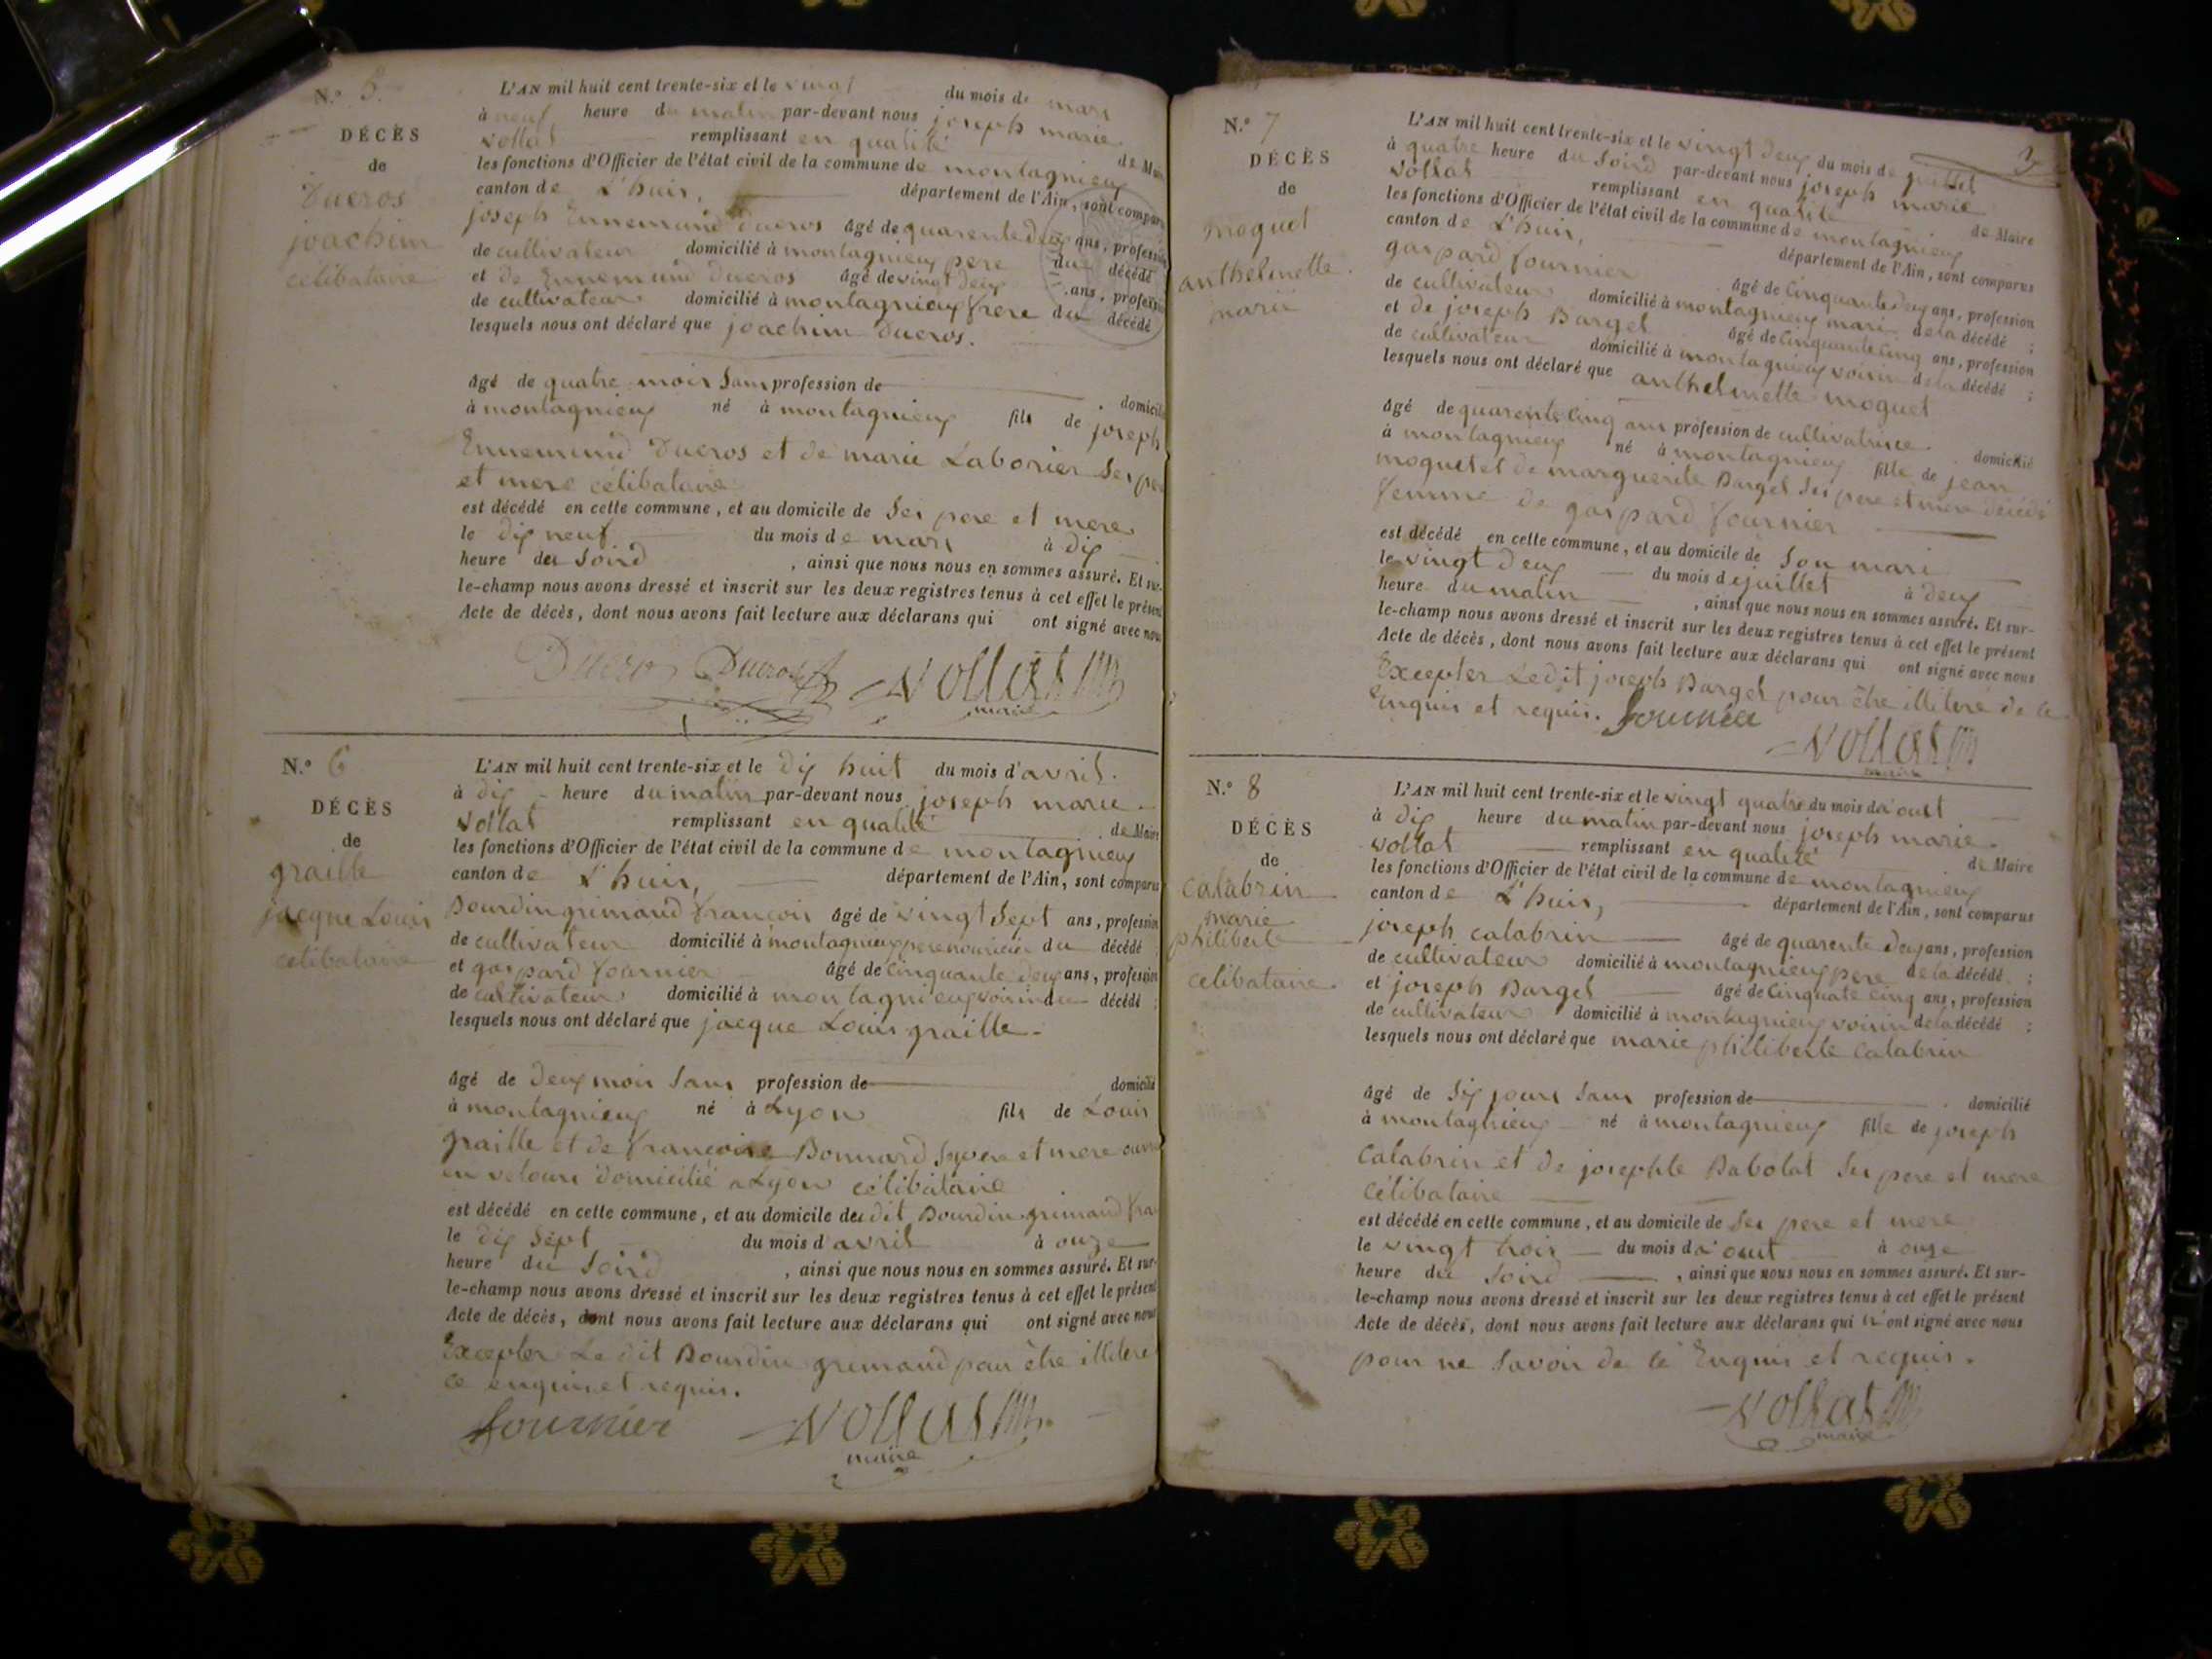 N.° 5.
DÉCÈS
de
Ducros
joachim
célibataire
L'AN mil huit cent trente-six et le vingt du mois de mars
à neuf heure du matin par-devant nous joseph marie
vollat remplissant en qualité de Maire
les fonctions d'Officier de l'état civil de la commune de montagnieux
canton de L'huis, département de l'Ain, sont comparus
joseph Ennemund Ducros âgé de quarente deux ans, profession
de cultivateur domicilié à montagnieux pere du décédé
et de Ennemund Ducros âgé de vingt deux ans, profession
de cultivateur domicilié à montagnieux frere du décédé
lesquels nous ont déclaré que joachim Ducros.
âgé de quatre mois Sans profession de domicilié
à montagnieux né à montagnieux fils de joseph
Ennemund Ducros et de marie Laborier Ses pere
et mere célibataire
est décédé en cette commune, et au domicile de Ses pere et mere
le dix neuf du mois de mars à dix
heure du Soird, ainsi que nous nous en sommes assuré. Et sur-
le-champ nous avons dressé et inscrit sur les deux registres tenus à cet effet le présent
Acte de décès, dont nous avons fait lecture aux déclarans qui ont signé avec nous
Ducros Ducros vollat
maire
N.° 6
DÉCÈS
de
graille
jacque Louis
célibataire
L'AN mil huit cent trente-six et le dix huit du mois d'avril.
à dix heure du matin par-devant nous joseph marie
vollat remplissant en qualité de Maire
les fonctions d'Officier de l'état civil de la commune de montagnieux
canton de L'huis, département de l'Ain, sont comparus
Bourdin grimaud françois âgé de vingt Sept ans, profession
de cultivateur domicilié à montagnieux pere nouricier du décédé
et gaspard fournier âgé de cinquante deux ans, profession
de cultivateur domicilié à montagnieux voisin du décédé ;
lesquels nous ont déclaré que jacque Louis graille.
âgé de deux mois Sans profession de domicilié
à montagnieux né à Lyon fils de Louis
graille et de françoise Bonnard Ses pere et mere
en velours domicilié a Lyon célibataire
est décédé en cette commune, et au domicile du dit Bourdin grimaud
le dix Sept du mois d'avril à onze
heure du Soird, ainsi que nous nous en sommes assuré. Et sur-
le-champ nous avons dressé et inscrit sur les deux registres tenus à cet effet le présent
Acte de décès, dont nous avons fait lecture aux déclarans qui ont signé avec nous
Excepter Le dit Bourdin grimaud pour être illiteré
ce enquis et requis.
fournier vollat
maire
3
N.° 7
DÉCÈS
de
moguet
anthelmette
marii
L'AN mil huit cent trente-six et le vingt deux du mois de juillet
à quatre heure du Soird par-devant nous joseph marie
vollat remplissant en qualité de Maire
les fonctions d'Officier de l'état civil de la commune de montagnieux
canton de L'huis, département de l'Ain, sont comparus
gaspard fournier âgé de cinquante deux ans, profession
de cultivateur domicilié à montagnieux mari de la décédé ;
et de joseph Barget âgé de cinquante cinq ans, profession
de cultivateur domicilié à montagnieux voisin de la décédé ;
lesquels nous ont déclaré que anthelmette moguet
âgé de quarente cinq ans profession de cultivatrice domicilié
à montagnieux né à montagnieux fille de jean
moguet et de marguerite Barget Ses pere et mere décédé
femme de gaspard fournier
est décédé en cette commune, et au domicile de Son mari
le vingt deux du mois de juillet à deux
heure du matin, ainsi que nous nous en sommes assuré. Et sur-
le-champ nous avons dressé et inscrit sur les deux registres tenus à cet effet le présent
Acte de décès, dont nous avons fait lecture aux déclarans qui ont signé avec nous
Excepter Ledit joseph Barget pour être illiteré de ce
Enquis et requis. fournier
vollat
maire
N.° 8
DÉCÈS
de
calabrin
marie
philiberte
célibataire.
L'AN mil huit cent trente-six et le vingt quatre du mois d'a'out
à dix heure du matin par-devant nous joseph marie
vollat remplissant en qualité de Maire
les fonctions d'Officier de l'état civil de la commune de montagnieux
canton de L'huis, département de l'Ain, sont comparus
joseph calabrin âgé de quarente deux ans, profession
de cultivateur domicilié à montagnieux pere de la décédé ;
et joseph Barget âgé de cinquate cinq ans, profession
de cultivateur domicilié à montagnieux voisin de la décédé ;
lesquels nous ont déclaré que marie philiberte calabrin
âgé de Six jours Sans profession de domicilié
à montagnieux né à montagnieux fille de joseph
calabrin et de josephte Babolat Ses pere et mere
célibataire
est décédé en cette commune, et au domicile de Ses pere et mere
le vingt trois du mois d'a'out à onze
heure du Soird, ainsi que nous nous en sommes assuré. Et sur-
le-champ nous avons dressé et inscrit sur les deux registres tenus à cet effet le présent
Acte de décès, dont nous avons fait lecture aux déclarans qui n'ont signé avec nous
pour ne Savoir de ce Enquis et requis.
vollat
maire